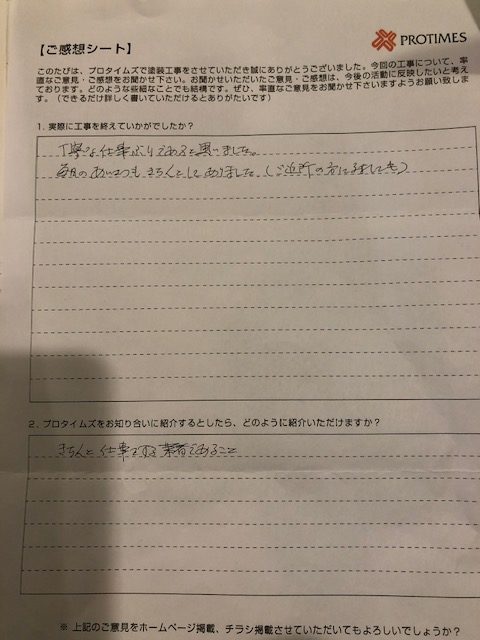 PROTIMES
【ご感想シート】
このたびは、プロタイムズで塗装工事をさせていただき誠にありがとうございました。今回の工事について、率
直なご意見・ご感想をお聞かせ下さい。お聞かせいただいたご意見・ご感想は、今後の活動に反映したいと考え
ております。どのような些細なことでも結構です。ぜひ、率直なご意見をお聞かせ下さいますようお願い致しま
す。（できるだけ詳しく書いていただけるとありがたいです）
1. 実際に工事を終えていかがでしたか？
丁寧な仕事ぶりであると思いました。
毎日のあいさつもきちんとしてありました。（ご近所の方にも
2. プロタイムズをお知り合いに紹介するとしたら、どのように紹介いただけますか？
きちんと仕事をする業者であること
※ 上記のご意見をホームページ掲載、チラシ掲載させていただいてもよろしいでしょうか？